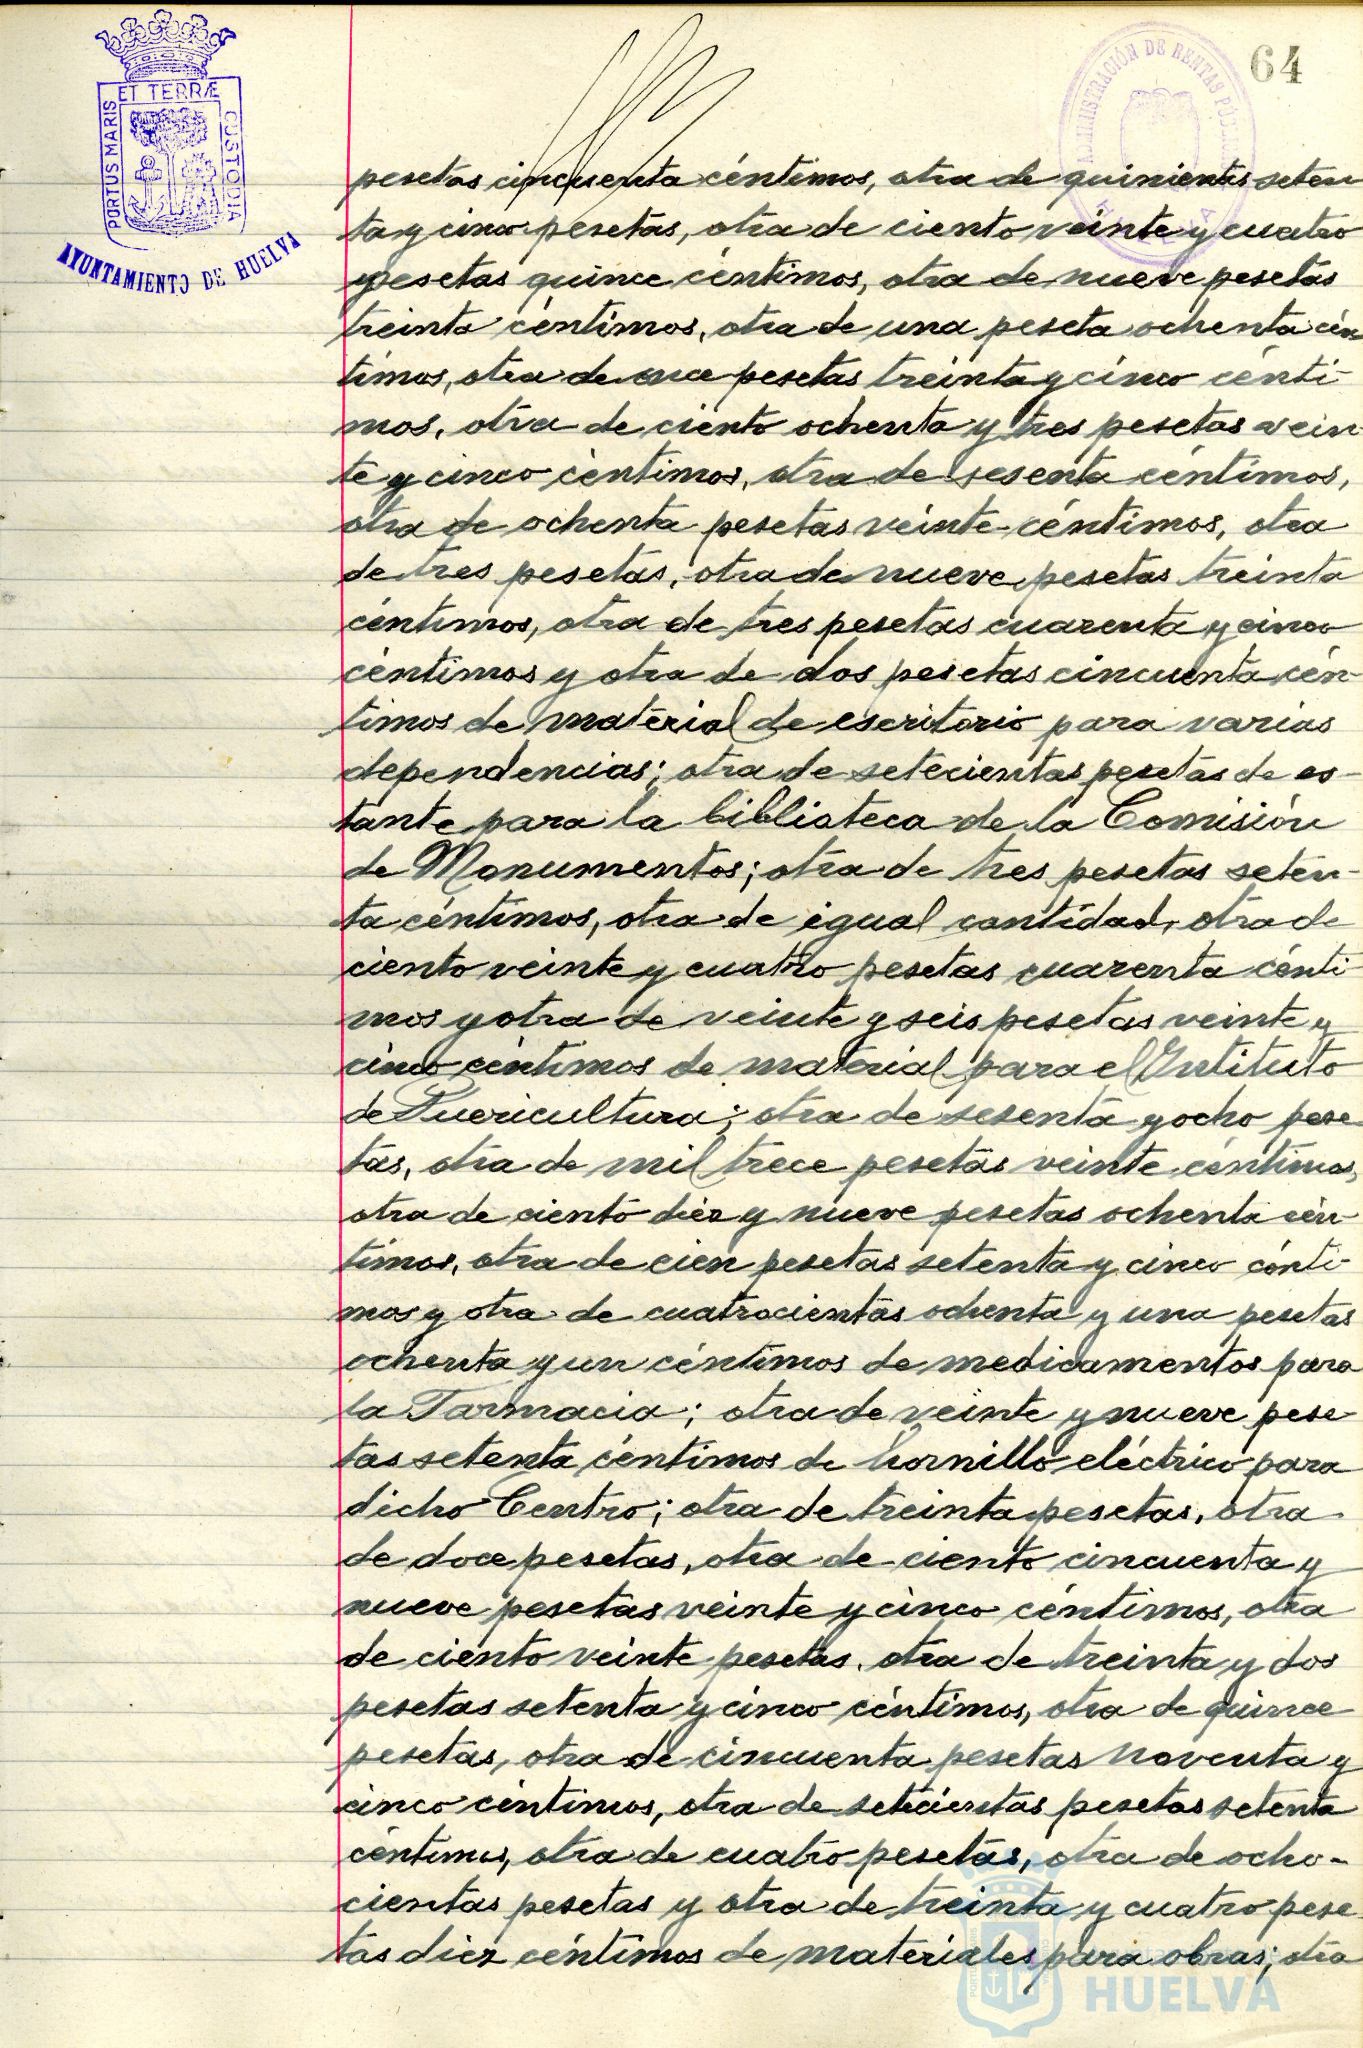 64
PORTUS MARIS ET TERRÆ CUSTODIA
AYUNTAMIENTO DE HUELVA
ADMINISTRACIÓN DE RENTAS PÚBLICAS
HUELVA
pesetas cincuenta céntimos, otra de quinientas seten
ta y cinco pesetas, otra de ciento veinte y cuatro
pesetas quince céntimos, otra de nueve pesetas
treinta céntimos, otra de una peseta ochenta cén
timos, otra de once pesetas treinta y cinco cénti-
mos, otra de ciento ochenta y tres pesetas vein-
te y cinco céntimos, otra de sesenta céntimos,
otra de ochenta pesetas veinte céntimos, otra
de tres pesetas, otra de nueve pesetas treinta
céntimos, otra de tres pesetas cuarenta y cinco
céntimos y otra de dos pesetas cincuenta cén-
timos de material de escritorio para varias
dependencias; otra de setecientas pesetas de es-
tante para la biblioteca de la Comisión
de Monumentos; otra de tres pesetas seten-
ta céntimos, otra de igual cantidad, otra de
ciento veinte y cuatro pesetas cuarenta cénti-
mos y otra de veinte y seis pesetas veinte y
cinco céntimos de material para el Intituto
de Puericultura; otra de sesenta y ocho pese-
tas, otra de mil trece pesetas veinte céntimos,
otra de ciento diez y nueve pesetas ochenta cén-
timos, otra de cien pesetas setenta y cinco cénti-
mos y otra de cuatrocientas ochenta y una pesetas
ochenta y un céntimos de medicamentos para
la Farmacia; otra de veinte y nueve pese-
tas setenta céntimos de hornillo eléctrico para
dicho Centro; otra de treinta pesetas, otra
de doce pesetas, otra de ciento cincuenta y
nueve pesetas veinte y cinco céntimos, otra
de ciento veinte pesetas, otra de treinta y dos
pesetas setenta y cinco céntimos, otra de quince
pesetas, otra de cincuenta pesetas noventa y
cinco céntimos, otra de setecientas pesetas setenta
céntimos, otra de cuatro pesetas, otra de ocho-
cientas pesetas y otra de treinta y cuatro pese-
tas diez céntimos de materiales para obras; otra
HUELVA